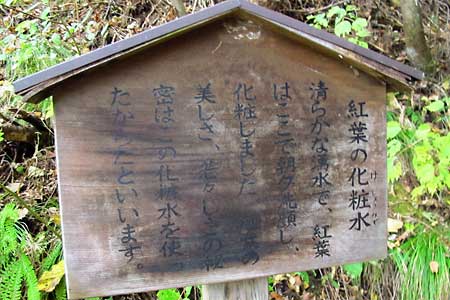 紅葉の化粧水
けしょう
清らかな湧水で、紅葉
はここで朝夕洗顔し、
化粧しました の
美しさ、若々しさの秘
密はこの化粧水を使っ
たからだといいます。